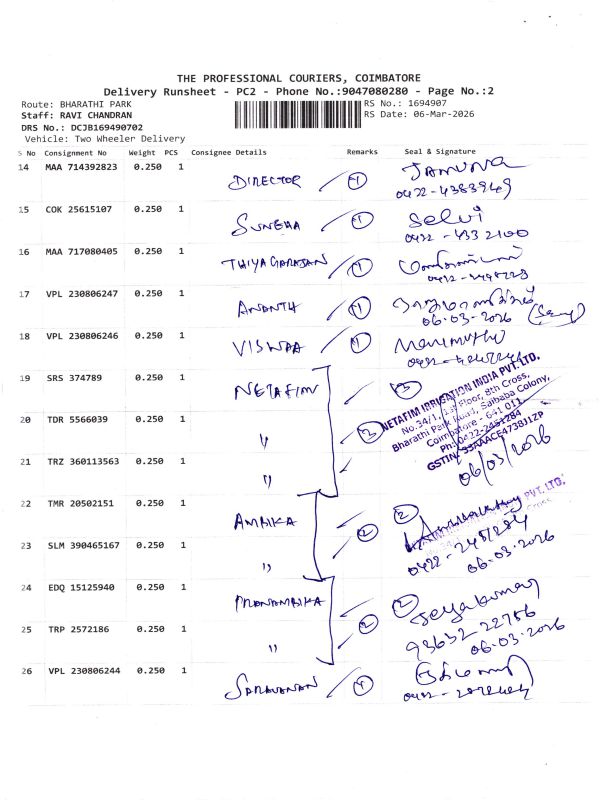 THE PROFESSIONAL COURIERS, COIMBATORE
Delivery Runsheet - PC2 - Phone No.:9047080280 - Page No.:2
Route: BHARATHI PARK
RS No.: 1694907
Staff: RAVI CHANDRAN
RS Date: 06-Mar-2026
DRS No.: DCJB169490702
Vehicle: Two Wheeler Delivery
S No Consignment No Weight PCS Consignee Details Remarks Seal & Signature
14 MAA 714392823 0.250 1 DIRECTOR 1 JAMUNA
0422-4383949
15 COK 25615107 0.250 1 SUNEHA 1 Selvi
0422-433 2100
16 MAA 717080405 0.250 1 THIYAGARAJAN 1
17 VPL 230806247 0.250 1 ANANTH 1
06-03-2026
18 VPL 230806246 0.250 1 VISWAA 1
19 SRS 374789 0.250 1 NETAFIM 3
20 TDR 5566039 0.250 1 " 3
21 TRZ 360113563 0.250 1 "
NETAFIM IRRIGATION INDIA PVT. LTD.
No.34/1, 1st Floor, 8th Cross,
Bharathi Park Road, Saibaba Colony,
Coimbatore - 641 011
Ph: 0422-2451284
GSTIN: 33AAACE4738J1ZP
06/03/2026
22 TMR 20502151 0.250 1 AMBIKA 2 2
PVT. LTD.
Cross
23 SLM 390465167 0.250 1 "
06-03-2026
24 EDQ 15125940 0.250 1 PRANAMBIKA 2 Jeyakumar
25 TRP 2572186 0.250 1 " 2 93632 22756
06-03-2026
26 VPL 230806244 0.250 1 SARAVANAN 1